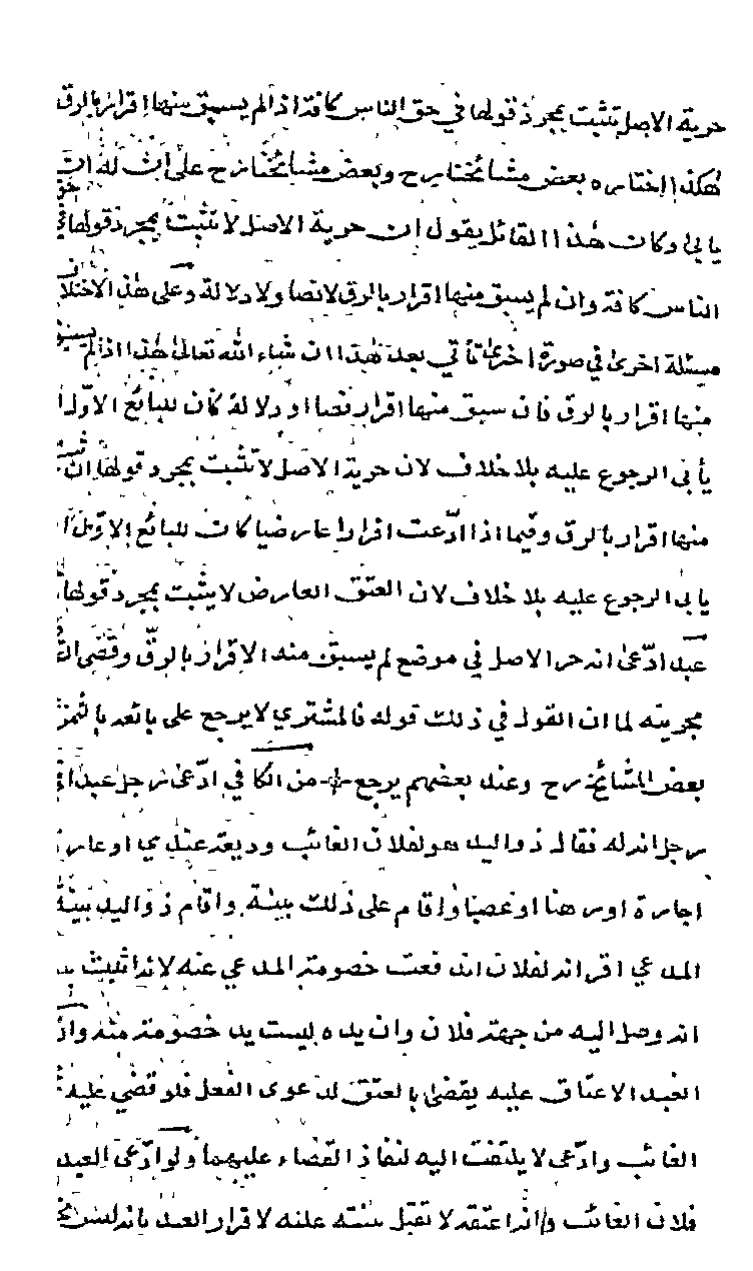 حرية الاصل تثبت بمجرد قولها في حق الناس كافة اذا لم يسبق منها اقرار بالرق
هكذا اختاره بعض مشائخنا رح وبعض مشائخنا رح على ان له ان
يأبى وكان هذا القائل يقول ان حرية الاصل لا تثبت بمجرد قولها في حق
الناس كافة وان لم يسبق منها اقرار بالرق لا نصا ولا دلالة وعلى هذا الاختلاف
مسئلة اخرى في صورة اخرى تأتي بعد هذا ان شاء الله تعالى هذا اذا لم يسبق
منها اقرار بالرق فان سبق منها اقرار نصا او دلالة كان للبائع الاول ان
يأبى الرجوع عليه بلا خلاف لان حرية الاصل لا تثبت بمجرد قولها ان سبق
منها اقرار بالرق وفيما اذا ادعت اقرارا عارضيا كان للبائع الاول ان
يابى الرجوع عليه بلا خلاف لان العتق العارض لا يثبت بمجرد قولها
عبد ادعى انه حر الاصل في موضع لم يسبق منه الاقرار بالرق وقضى
بحريته لما ان القول في ذلك قوله فالمشتري لا يرجع على بائعه بالثمن
بعض المشائخ رح وعند بعضهم يرجع من الكافي ادعى رجل عبدا
رجل انه له فقال ذو اليد هو لفلان الغائب وديعة عندي او عارية
اجارة او رهنا او غصبا واقام على ذلك بينة واقام ذو اليد بينة
المدعي اقر انه لفلان اندفعت خصومة المدعي عنه لانه اثبت
انه وصل اليه من جهة فلان وان يده ليست يد خصومة منه وان
العبد الاعتاق عليه يقضى بالعتق لدعوى الفعل فلو قضي عليه
الغائب وادعى لا يلتفت اليه لنفاذ القضاء عليهما ولو ادعى العبد
فلان الغائب وانه اعتقه لا تقبل بينته عليه لاقرار العبد بانه ليس